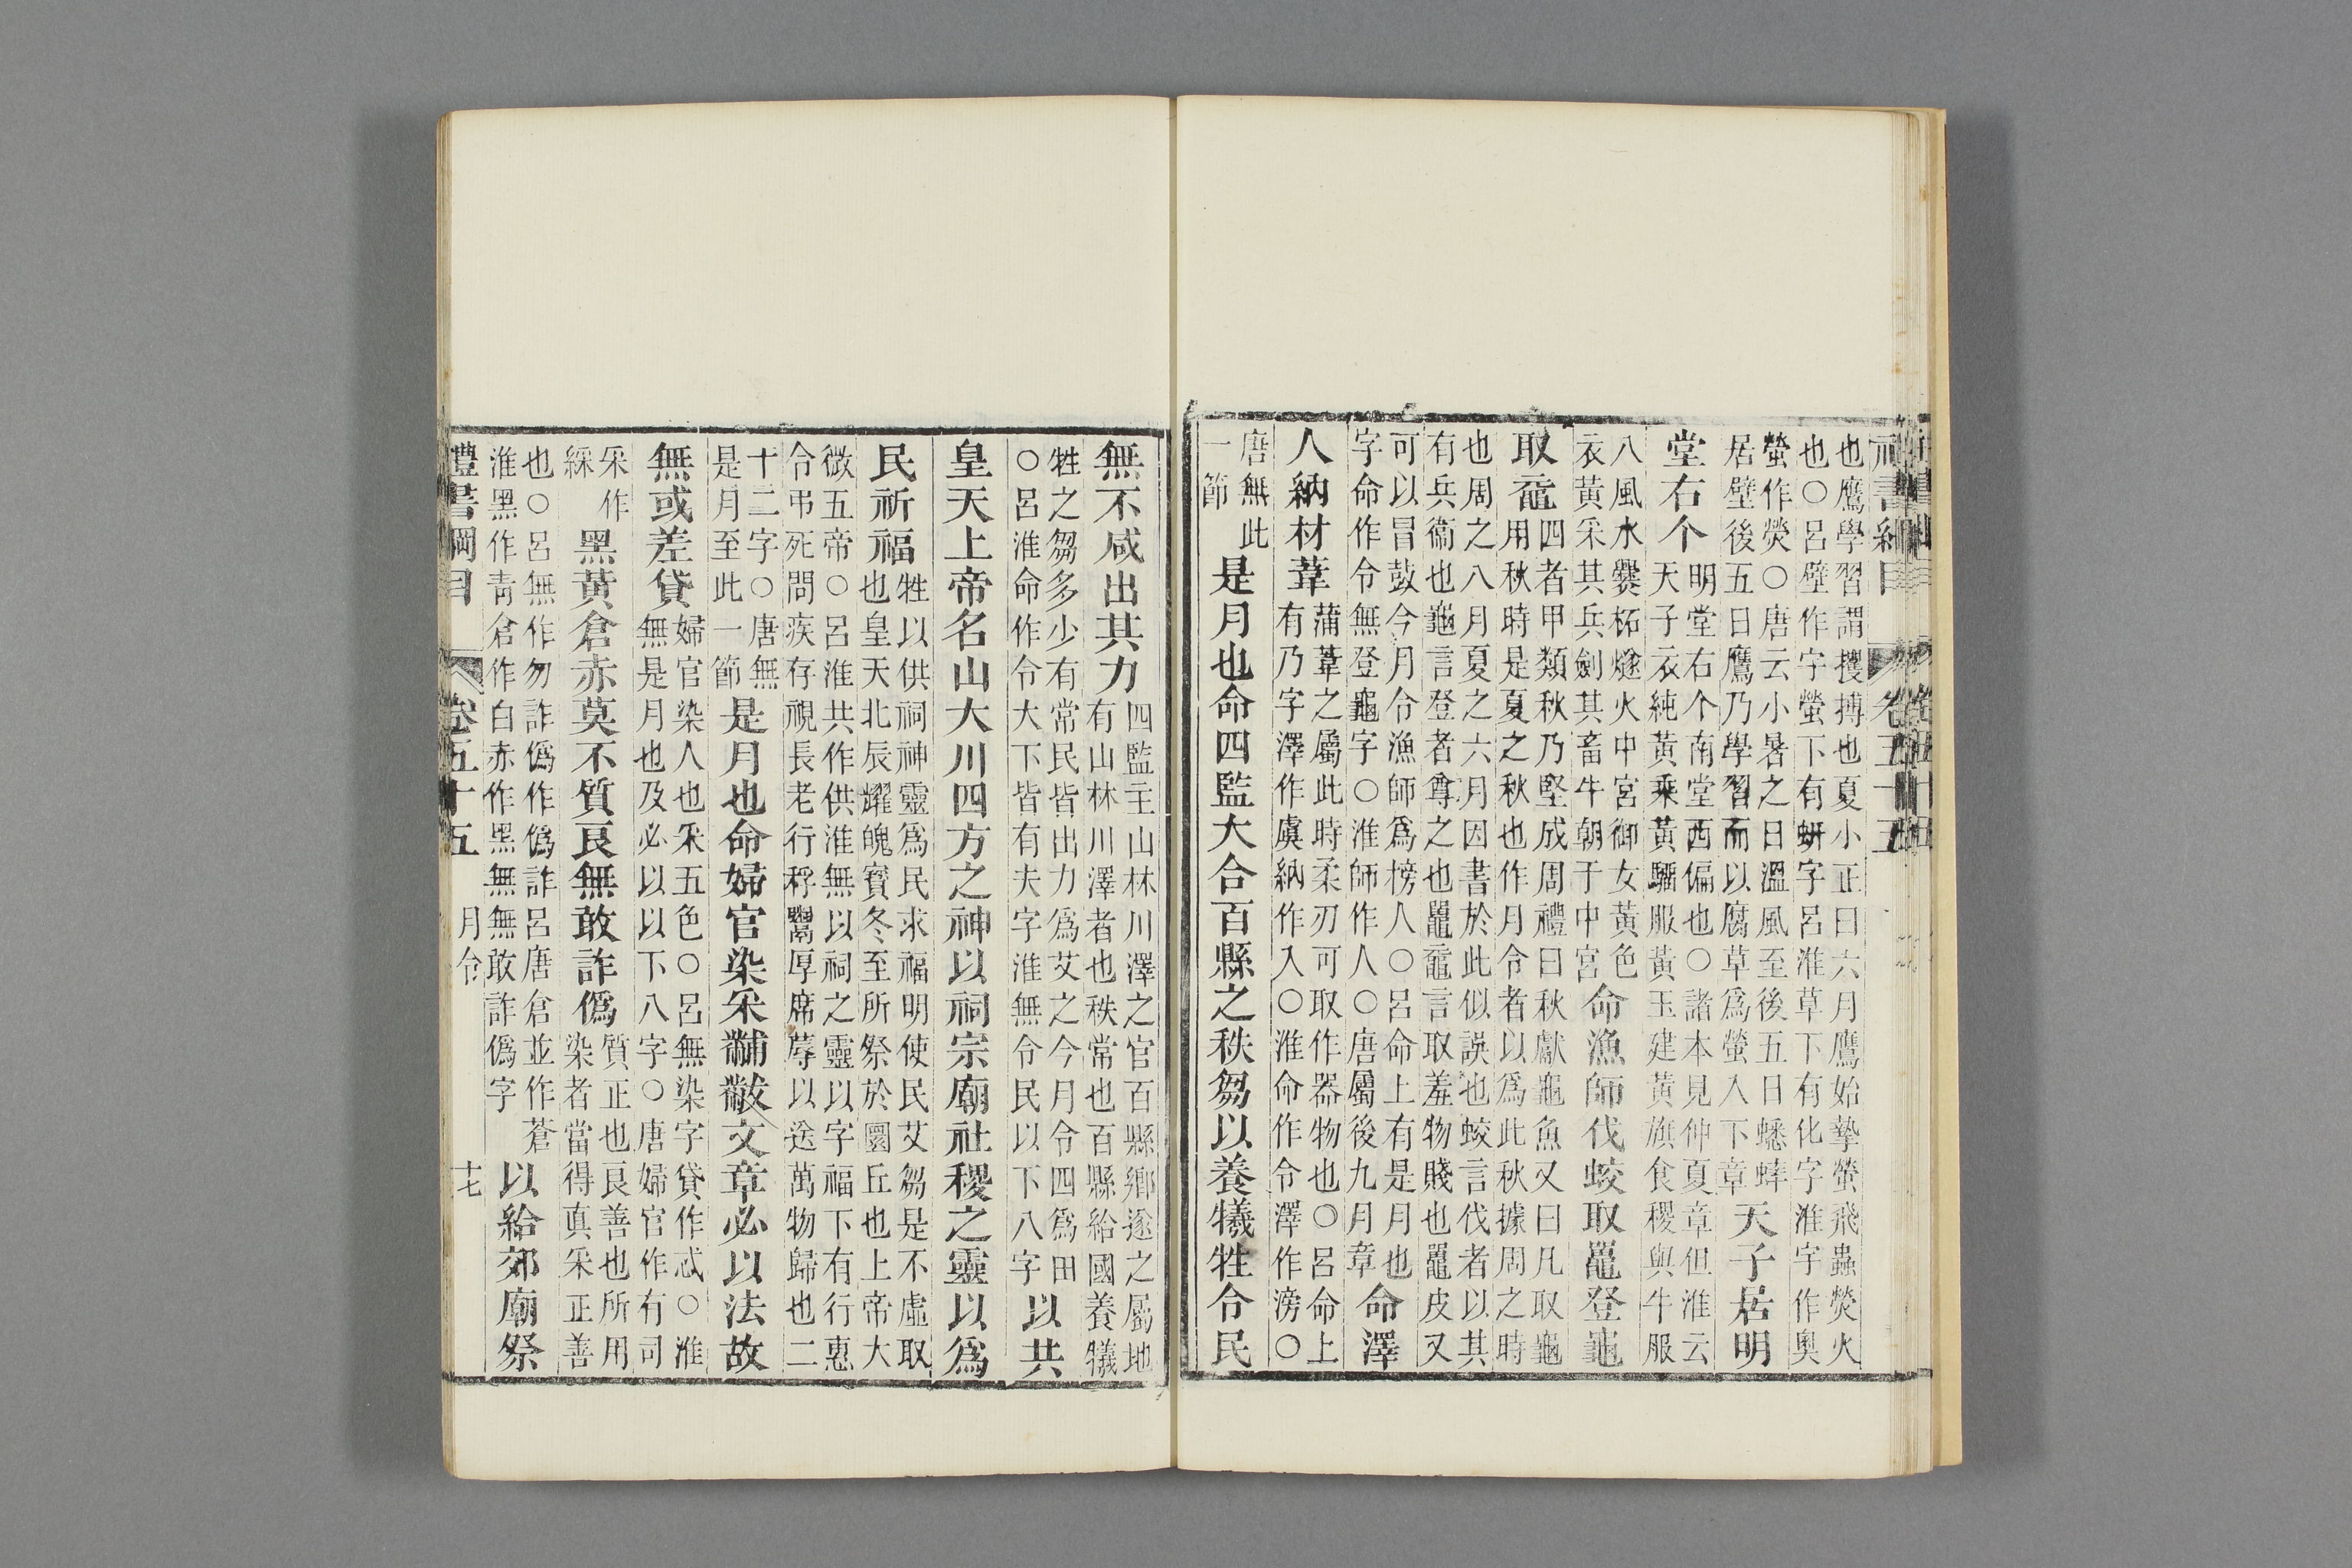 禮書綱目 卷五十五
也鷹學習謂攫搏也夏小正曰六月鷹始摯螢飛蟲熒火
也○呂壁作字螢下有蚈字呂淮草下有化字淮字作奧
螢作熒○唐云小暑之日溫風至後五日蟋蟀
居壁後五日鷹乃學習而以腐草爲螢入下章
天子居明
堂右个
明堂右个南堂西偏也○諸本見仲夏章但淮云
天子衣純黃乘黃驪服黃玉建黃旗食稷與牛服
八風水爨柘燧火中宮御女黃色
衣黃采其兵劍其畜牛朝于中宮
命漁師伐蛟取鼉登龜
取黿
四者甲類秋乃堅成周禮曰秋獻龜魚又曰凡取龜
用秋時是夏之秋也作月令者以爲此秋據周之時
也周之八月夏之六月因書於此似誤也蛟言伐者以其
有兵衞也龜言登者尊之也鼉黿言取羞物賤也鼉皮又
可以冒鼓今月令漁師爲榜人○呂命上有是月也
字命作令無登龜字○淮師作人○唐屬後九月章
命澤
人納材葦
蒲葦之屬此時柔刃可取作器物也○呂命上
有乃字澤作虞納作入○淮命作令澤作滂○
唐無此
一節
是月也命四監大合百縣之秩芻以養犧牲令民
無不咸出其力
四監主山林川澤之官百縣鄉遂之屬地
有山林川澤者也秩常也百縣給國養犧
牲之芻多少有常民皆出力爲艾之今月令四爲田
○呂淮命作令大下皆有夫字淮無令民以下八字
以共
皇天上帝名山大川四方之神以祠宗廟社稷之靈以爲
民祈福
牲以供祠神靈爲民求福明使民艾芻是不虛取
也皇天北辰耀魄寳冬至所祭於圜丘也上帝大
微五帝○呂淮共作供淮無以祠之靈以字福下有行惠
令弔死問疾存視長老行稃鬻厚席蓐以送萬物歸也二
十二字○唐無
是月至此一節
是月也命婦官染采黼黻文章必以法故
無或差貸
婦官染人也采五色○呂無染字貸作忒○淮
無是月也及必以以下八字○唐婦官作有司
采作
綵
黑黃倉赤莫不質良無敢詐僞
質正也良善也所用
染者當得眞采正善
也○呂無作勿詐僞作僞詐呂唐倉並作蒼
淮黑作靑倉作白赤作黑無無敢詐僞字
以給郊廟祭
禮書綱目 卷五十五 月令 十七